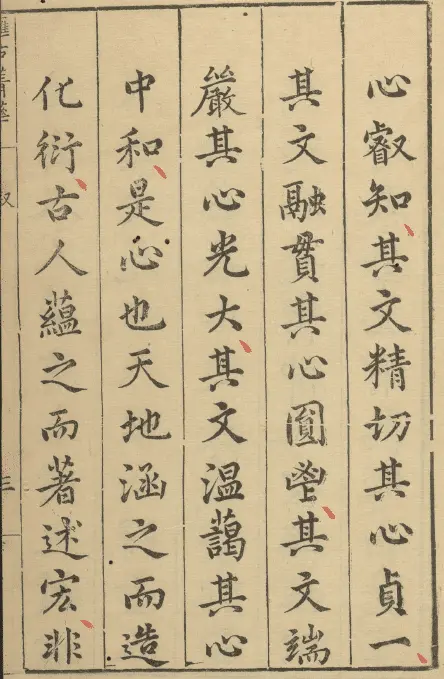 心叡知其文精切其心貞一
其文融貫其心圓鬯其文端
嚴其心光大其文温藹其心
中和是心也天地涵之而造
化衍古人蘊之而著述宏非